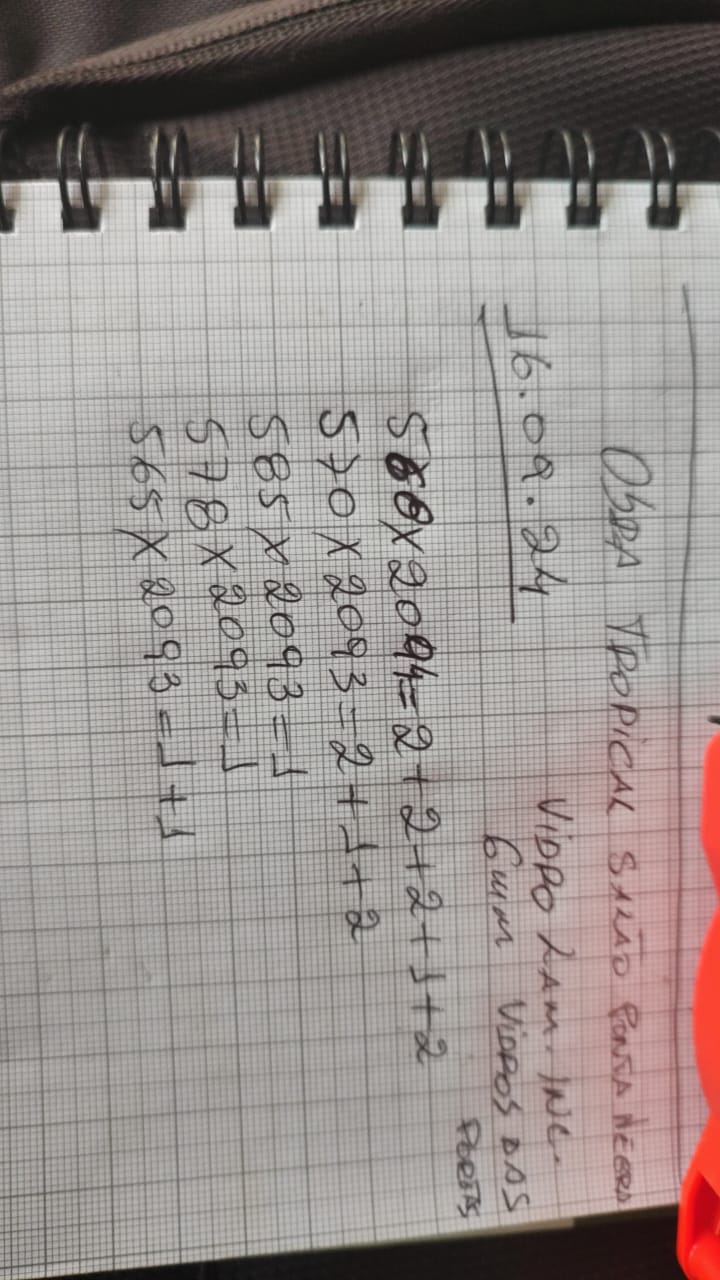 OBRA TROPICAL SALÃO PONTA NEGRA
VIDRO LAM. INC.
16.09.24
6mm VIDROS DAS
PORTAS
560 X 2094 = 2 + 2 + 2 + 1 + 2
570 X 2093 = 2 + 1 + 2
585 X 2093 = 1
578 X 2093 = 1
565 X 2093 = 1 + 1